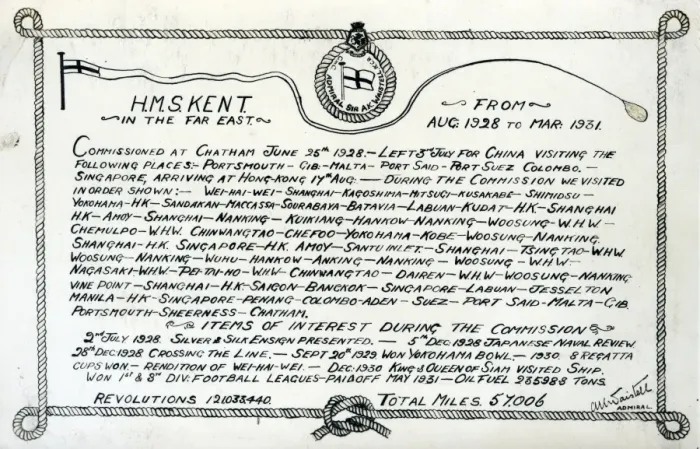 C-IN-C ADMIRAL SIR A.K. WAISTELL K.C.B.
H.M.S. KENT.
IN THE FAR EAST.
FROM
AUG: 1928 TO MAR: 1931.
COMMISSIONED AT CHATHAM JUNE 25TH 1928.— LEFT 3RD JULY FOR CHINA VISITING THE
FOLLOWING PLACES:— PORTSMOUTH — GIB:— MALTA — PORT SAID — PORT SUEZ COLOMBO.—
SINGAPORE, ARRIVING AT HONG-KONG 17TH AUG:— DURING THE COMMISSION WE VISITED
IN ORDER SHOWN:— WEI-HAI-WEI — SHANGHAI — KAGOSHIMA — MITSUGI — KUSAKABE — SHIMIDSU —
YOKOHAMA — HK — SANDAKAN — MACCASSA — SOURABAYA — BATAVIA — LABUAN — KUDAT — H.K — SHANGHAI
H.K — AMOY — SHANGHAI — NANKING — KUIKIANG — HANKOW — NANKING — WOOSUNG — W.H.W. —
CHEMULPO — W.H.W. CHINWANGTAO — CHEFOO — YOKOHAMA — KOBE — WOOSUNG — NANKING.
SHANGHAI — H.K. SINGAPORE — H.K. AMOY — SANTU INLET. — SHANGHAI — TSINGTAO — W.H.W.
WOOSUNG — NANKING — WUHU — HANKOW — ANKING — NANKING — WOOSUNG — W.H.W. —
NAGASAKI — W.H.W. — PEI-TAI-HO — W.H.W — CHINWANGTAO — DAIREN — W.H.W — WOOSUNG — NANKING
VINE POINT — SHANGHAI — H.K — SAIGON — BANGKOK — SINGAPORE — LABUAN — JESSELTON
MANILA — H.K — SINGAPORE — PENANG — COLOMBO — ADEN — SUEZ — PORT SAID — MALTA — GIB.
PORTSMOUTH — SHEERNESS — CHATHAM.
ITEMS OF INTEREST DURING THE COMMISSION
2ND JULY 1928. SILVER & SILK ENSIGN PRESENTED. — 5TH DEC. 1928 JAPANESE NAVAL REVIEW.
28TH DEC 1928 CROSSING THE LINE. — SEPT 20TH 1929 WON YOKOHAMA BOWL. — 1930. 8 REGATTA
CUPS WON. — RENDITION OF WEI-HAI-WEI. — DEC: 1930 KING & QUEEN OF SIAM VISITED SHIP.
WON 1ST & 8TH DIV: FOOTBALL LEAGUES — PAID OFF MAY 1931 — OIL FUEL 23598.8 TONS.
REVOLUTIONS 121,033,440. TOTAL MILES. 57,006
AKWaistell
ADMIRAL.